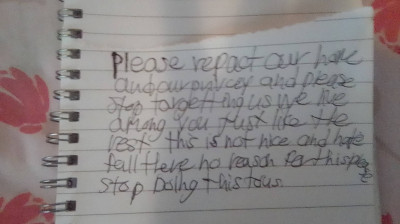 Please repact our home
and our privcey and please
stop targetting us we live
among you Just like the
rest this is not nice and hate
full there no reason for this please
stop boing this tous